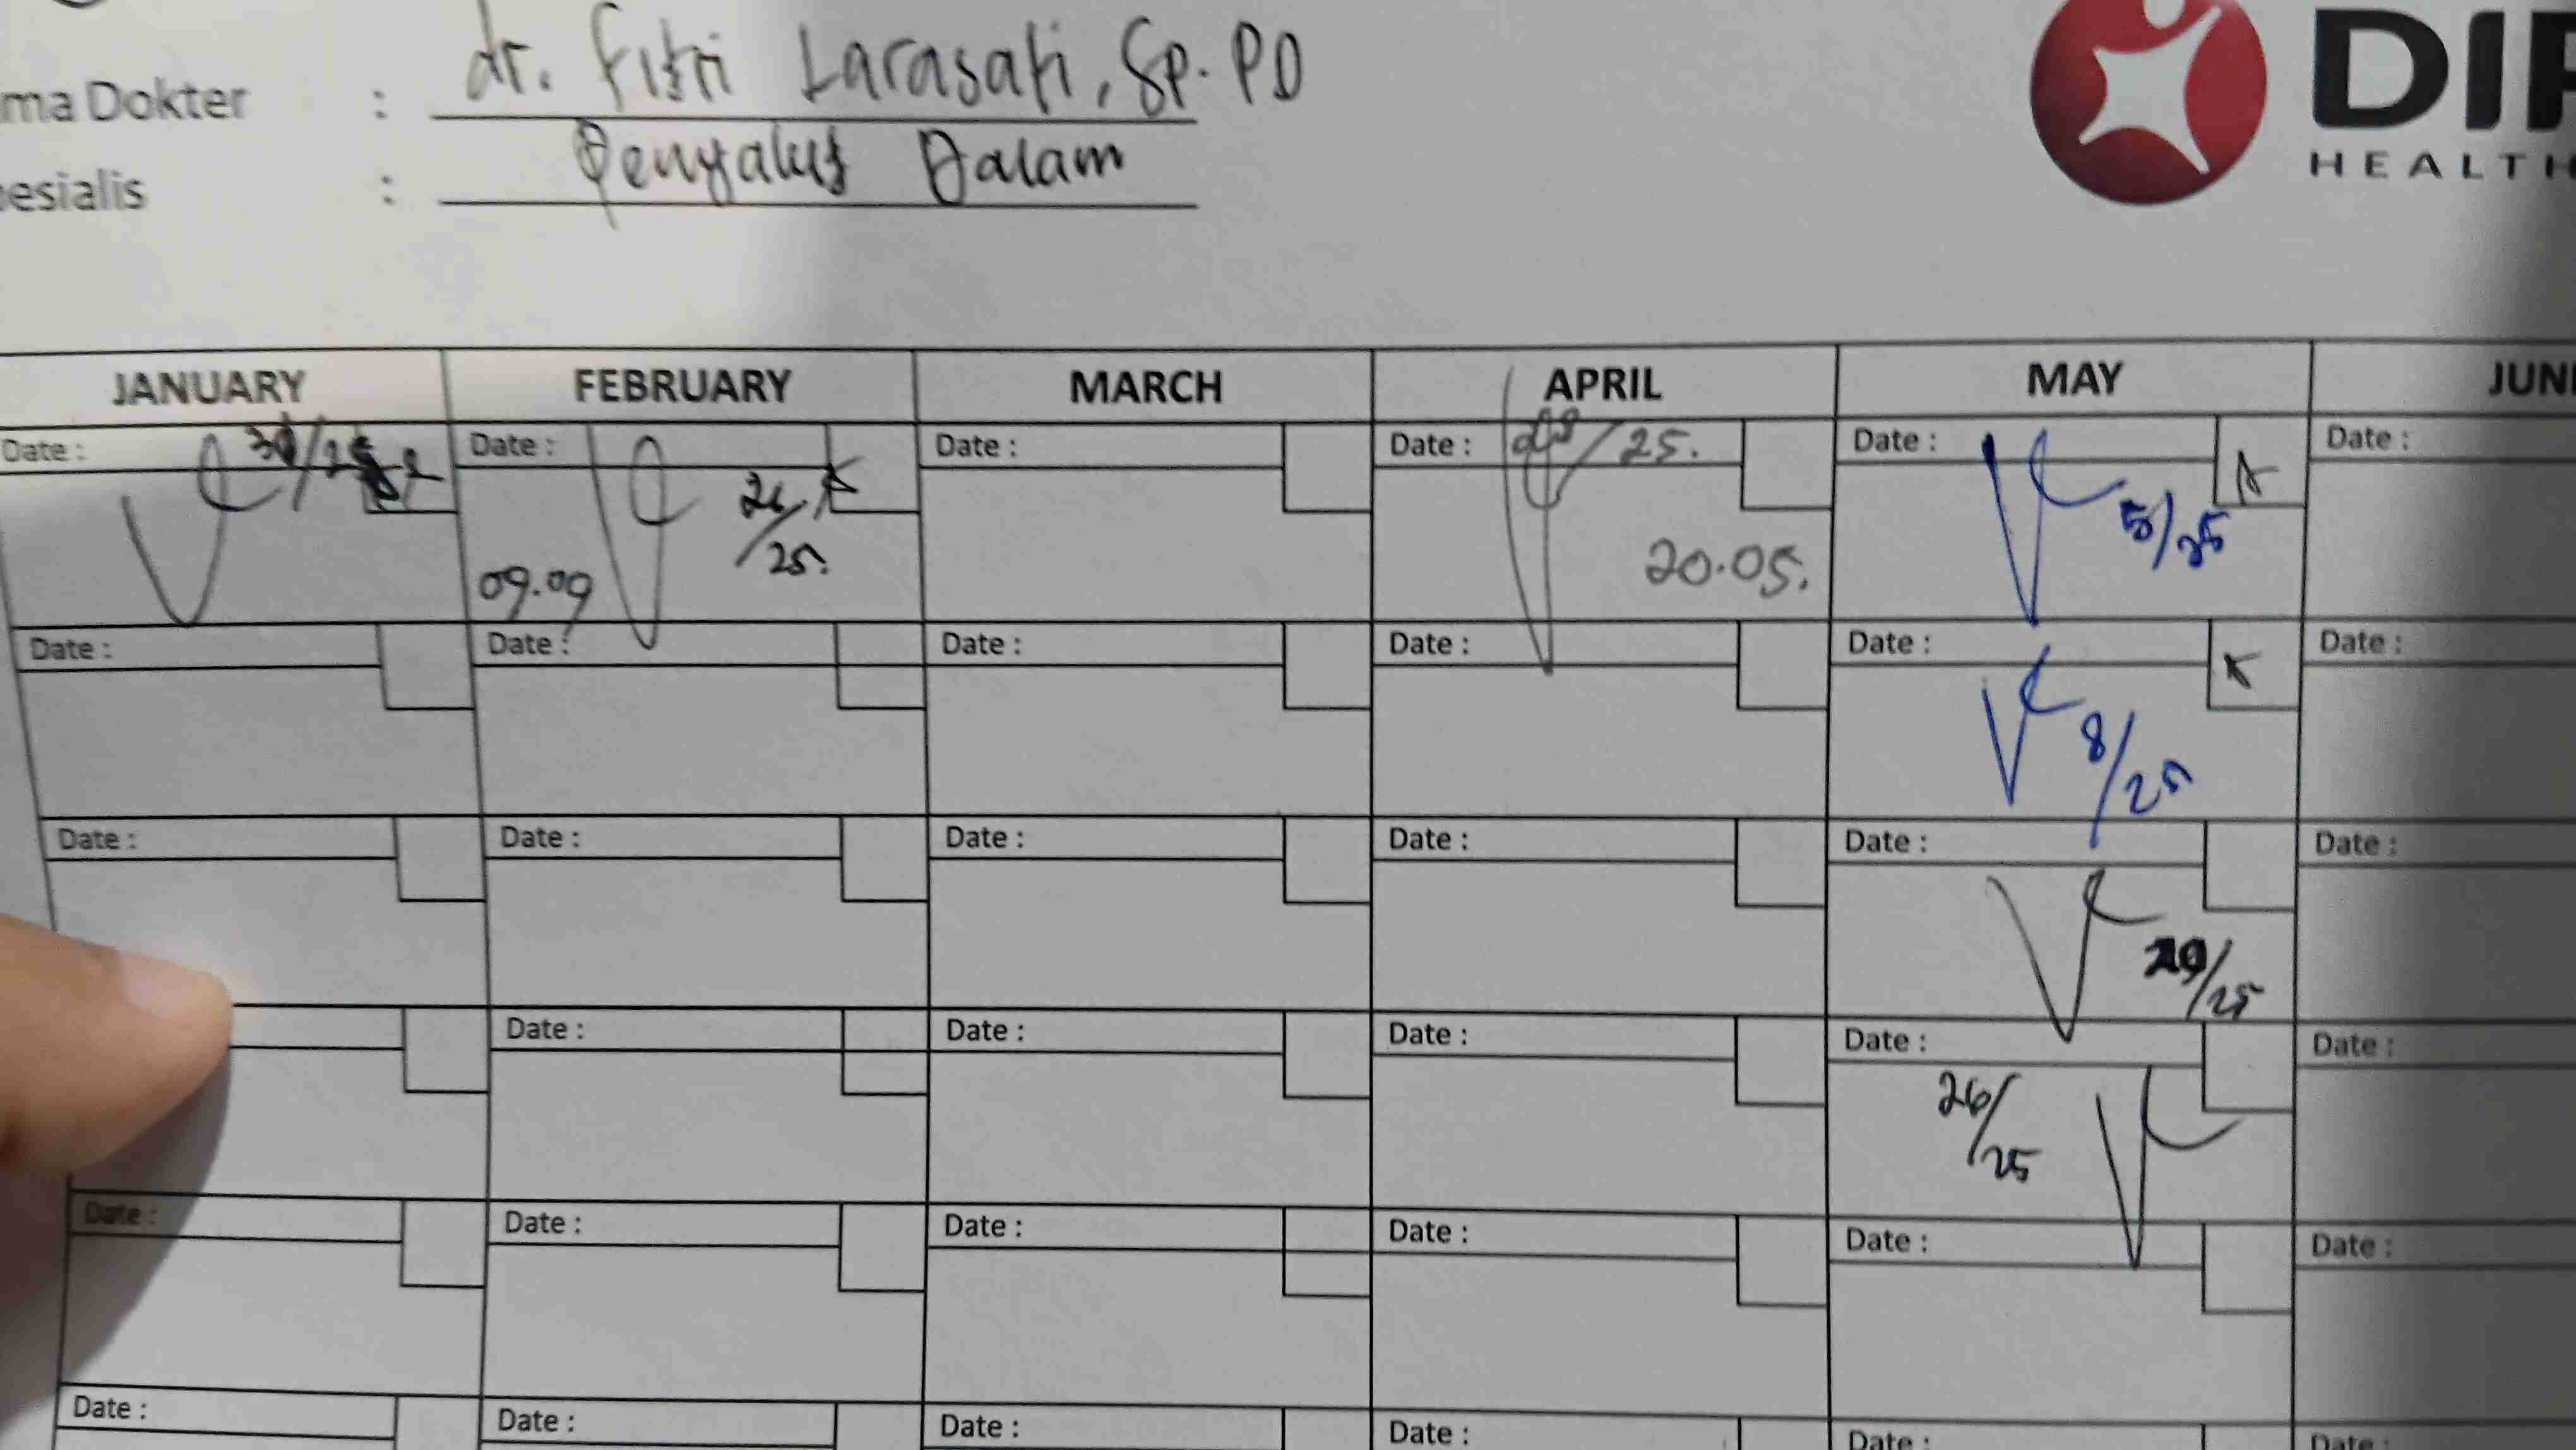 ma Dokter : dr. Fitri Larasati, Sp. PD
esialis : Penyakit Dalam
DIP
HEALTH
JANUARY FEBRUARY MARCH APRIL MAY JUN
Date : Date : Date : Date : /25. Date : Date :
26/25. 5/25
09.09 20.05.
Date : Date : Date : Date : Date : Date :
8/25
Date : Date : Date : Date : Date : Date :
/25
Date : Date : Date : Date : Date :
26/25
Date : Date : Date : Date : Date : Date :
Date : Date : Date : Date : Date : Date :